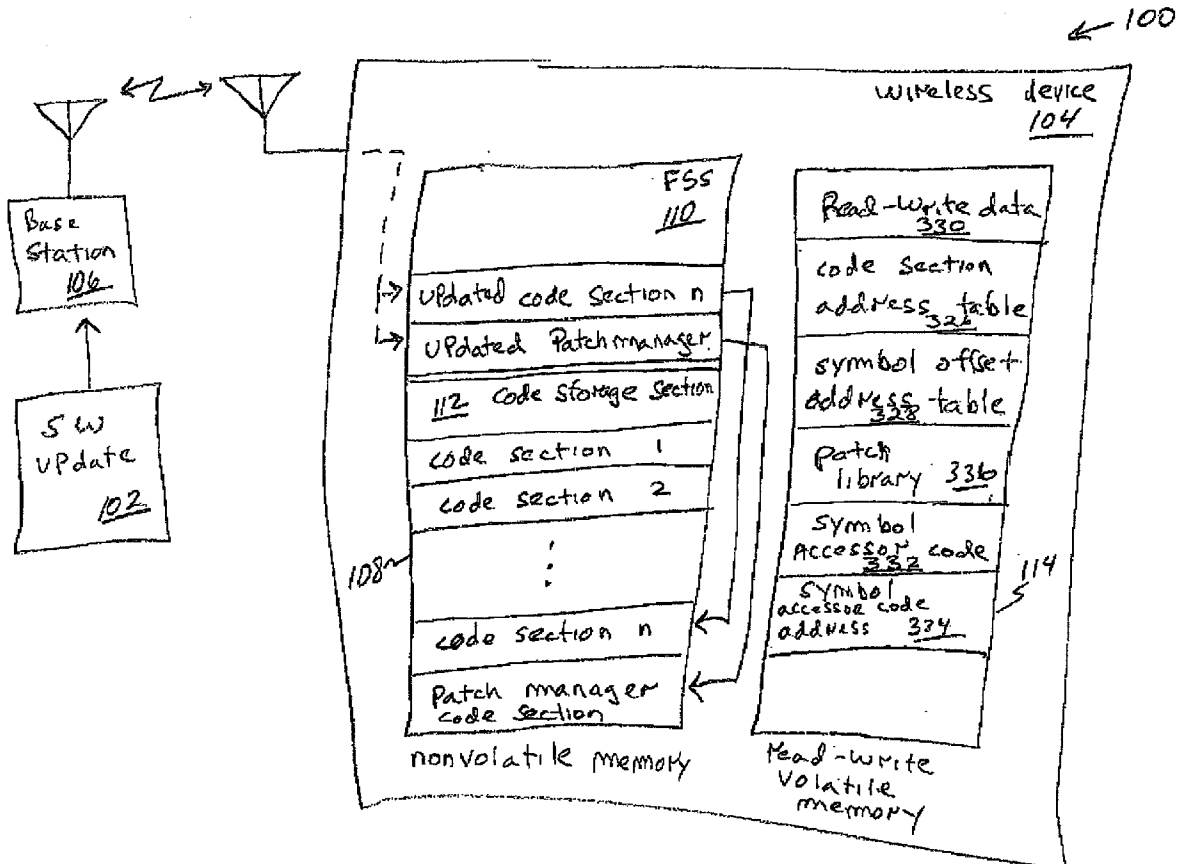 100
wireless device
104
Base
Station
106
SW
update
102
FSS
110
updated code section n
updated Patchmanager
112 code storage section
code section 1
code section 2
108
code section n
Patch manager
code section
nonvolatile memory
Read-write data
330
code section
address table
326
symbol offset
address table
328
patch
library 336
symbol
Accessor code
332
114
symbol
accessor code
address 334
read-write
volatile
memory